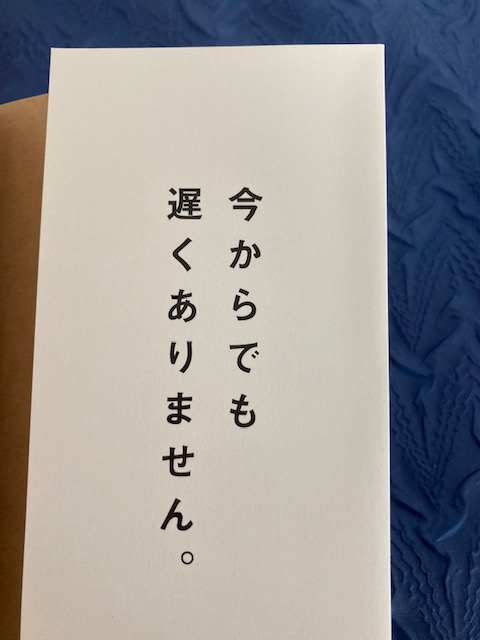 今からでも
遅くありません。